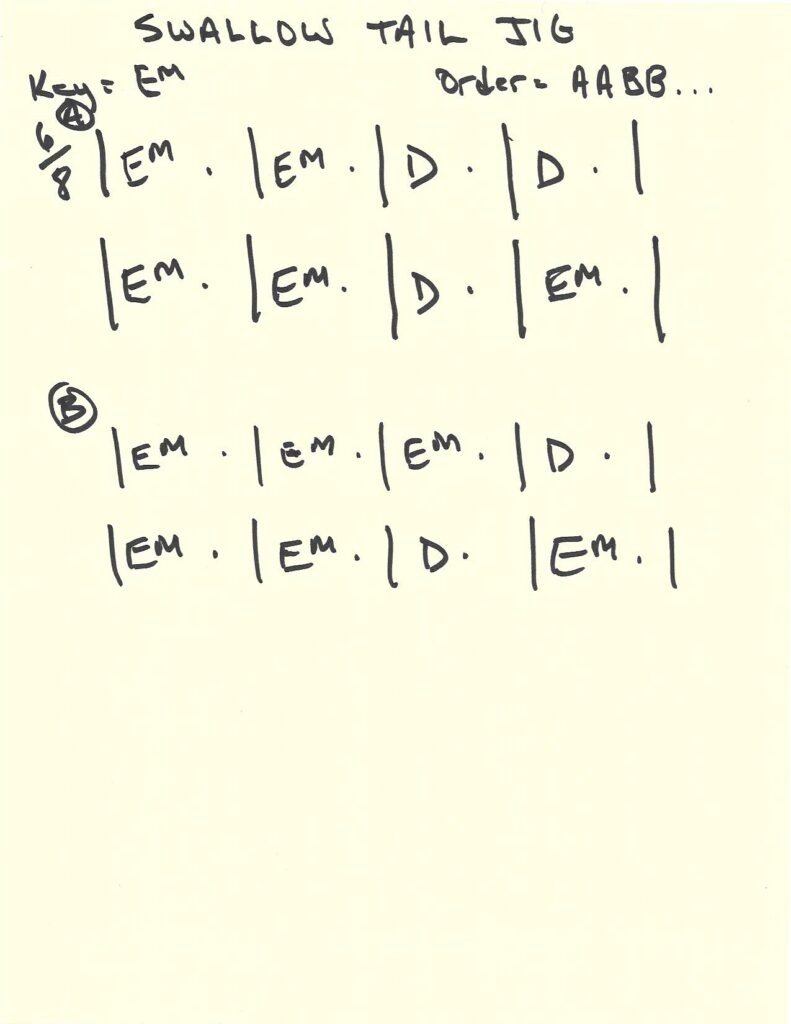 SWALLOW TAIL JIG
Key = EM Order = AABB...
A
6/8 | EM . | EM . | D . | D . |
| EM . | EM . | D . | EM . |
B
| EM . | EM . | EM . | D . |
| EM . | EM . | D . | EM . |